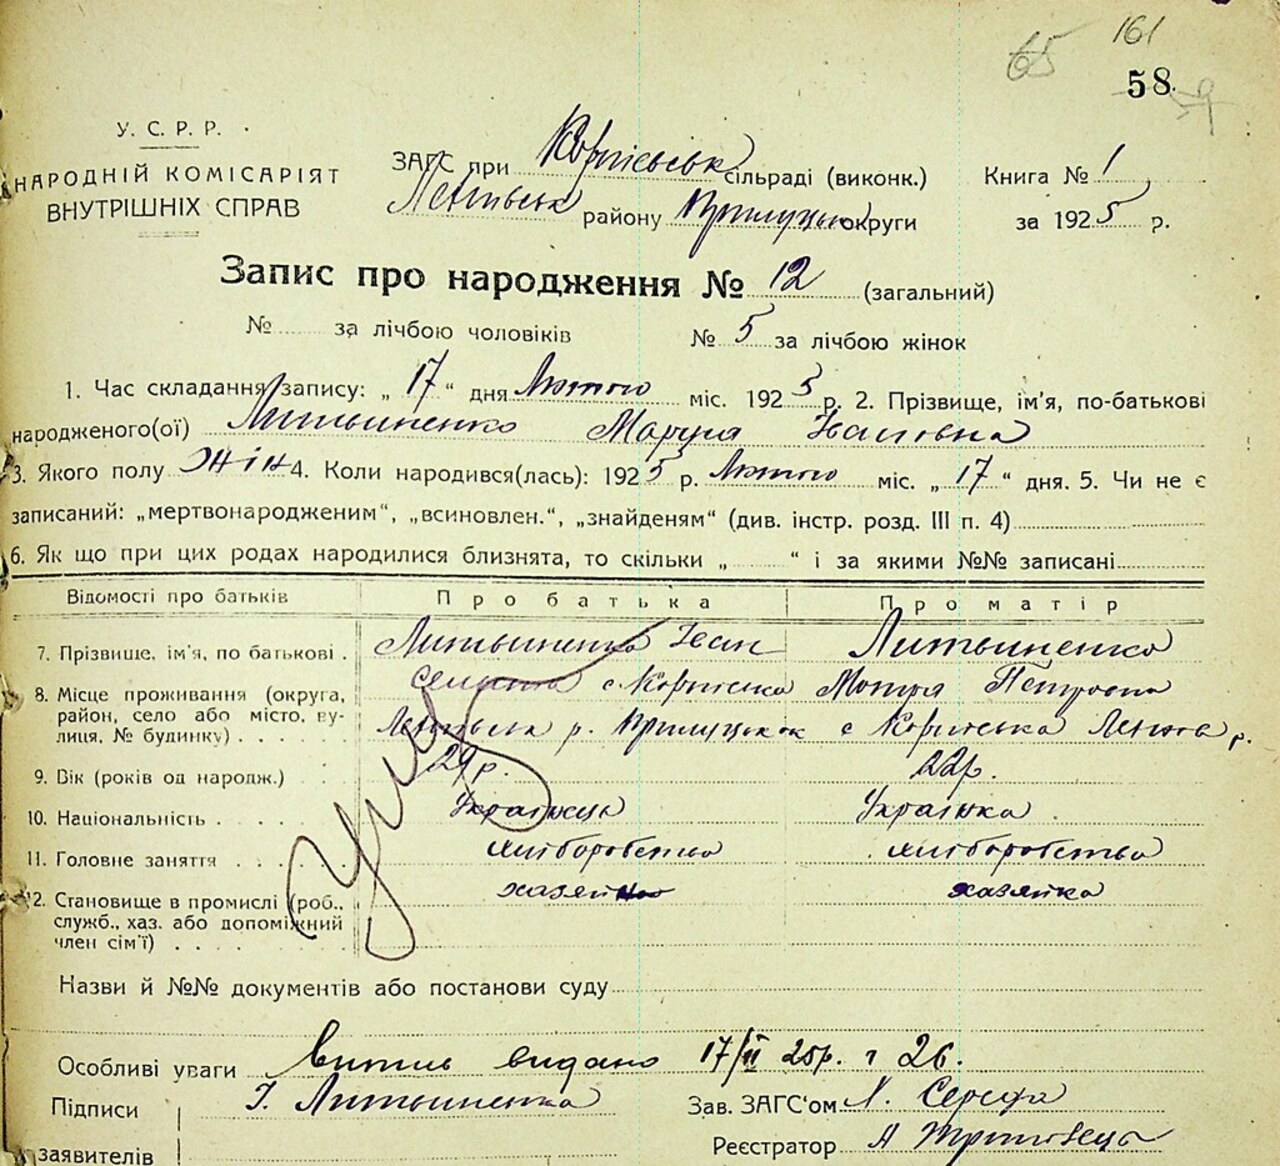 65 161
58.
У. С. Р. Р.
НАРОДНІЙ КОМІСАРІЯТ
ВНУТРІШНІХ СПРАВ
ЗАГС при сільраді (виконк.) Книга № 1
району округи за 1925 р.
Запис про народження № 12 (загальний)
№ за лічбою чоловіків № 5 за лічбою жінок
1. Час складання запису: „ 17 “ дня Лютого міс. 1925 р. 2. Прізвище, ім'я, по-батькові
народженого(ої) Литвиненко Івановна
3. Якого полу Жін 4. Коли народився(лась): 1925 р. Лютого міс. „ 17 “ дня. 5. Чи не є
записаний: „мертвонародженим“, „всиновлен.“, „знайденям“ (див. інстр. розд. III п. 4)
6. Як що при цих родах народилися близнята, то скільки „ “ і за якими №№ записані
Відомості про батьків Про батька Про матір
7. Прізвище, ім'я, по батькові . Литвиненко Іван Литвиненко
8. Місце проживання (округа, Мотря Петровна
район, село або місто, ву-
лиця, № будинку) . . . . .
9. Вік (років од народж.) 29 р. 22 р.
10. Національність . Українець Українка
11. Головне заняття . . . . хліборобство хліборобство
12. Становище в промислі (роб., хазяїн хазяйка
служб., хаз. або допоміжний
член сім'ї) . . . .
Назви й №№ документів або постанови суду
Особливі уваги Витяг видано 17/II 25р. 26.
Підписи І. Литвиненко Зав. ЗАГС'ом Середа
заявителів Реєстратор